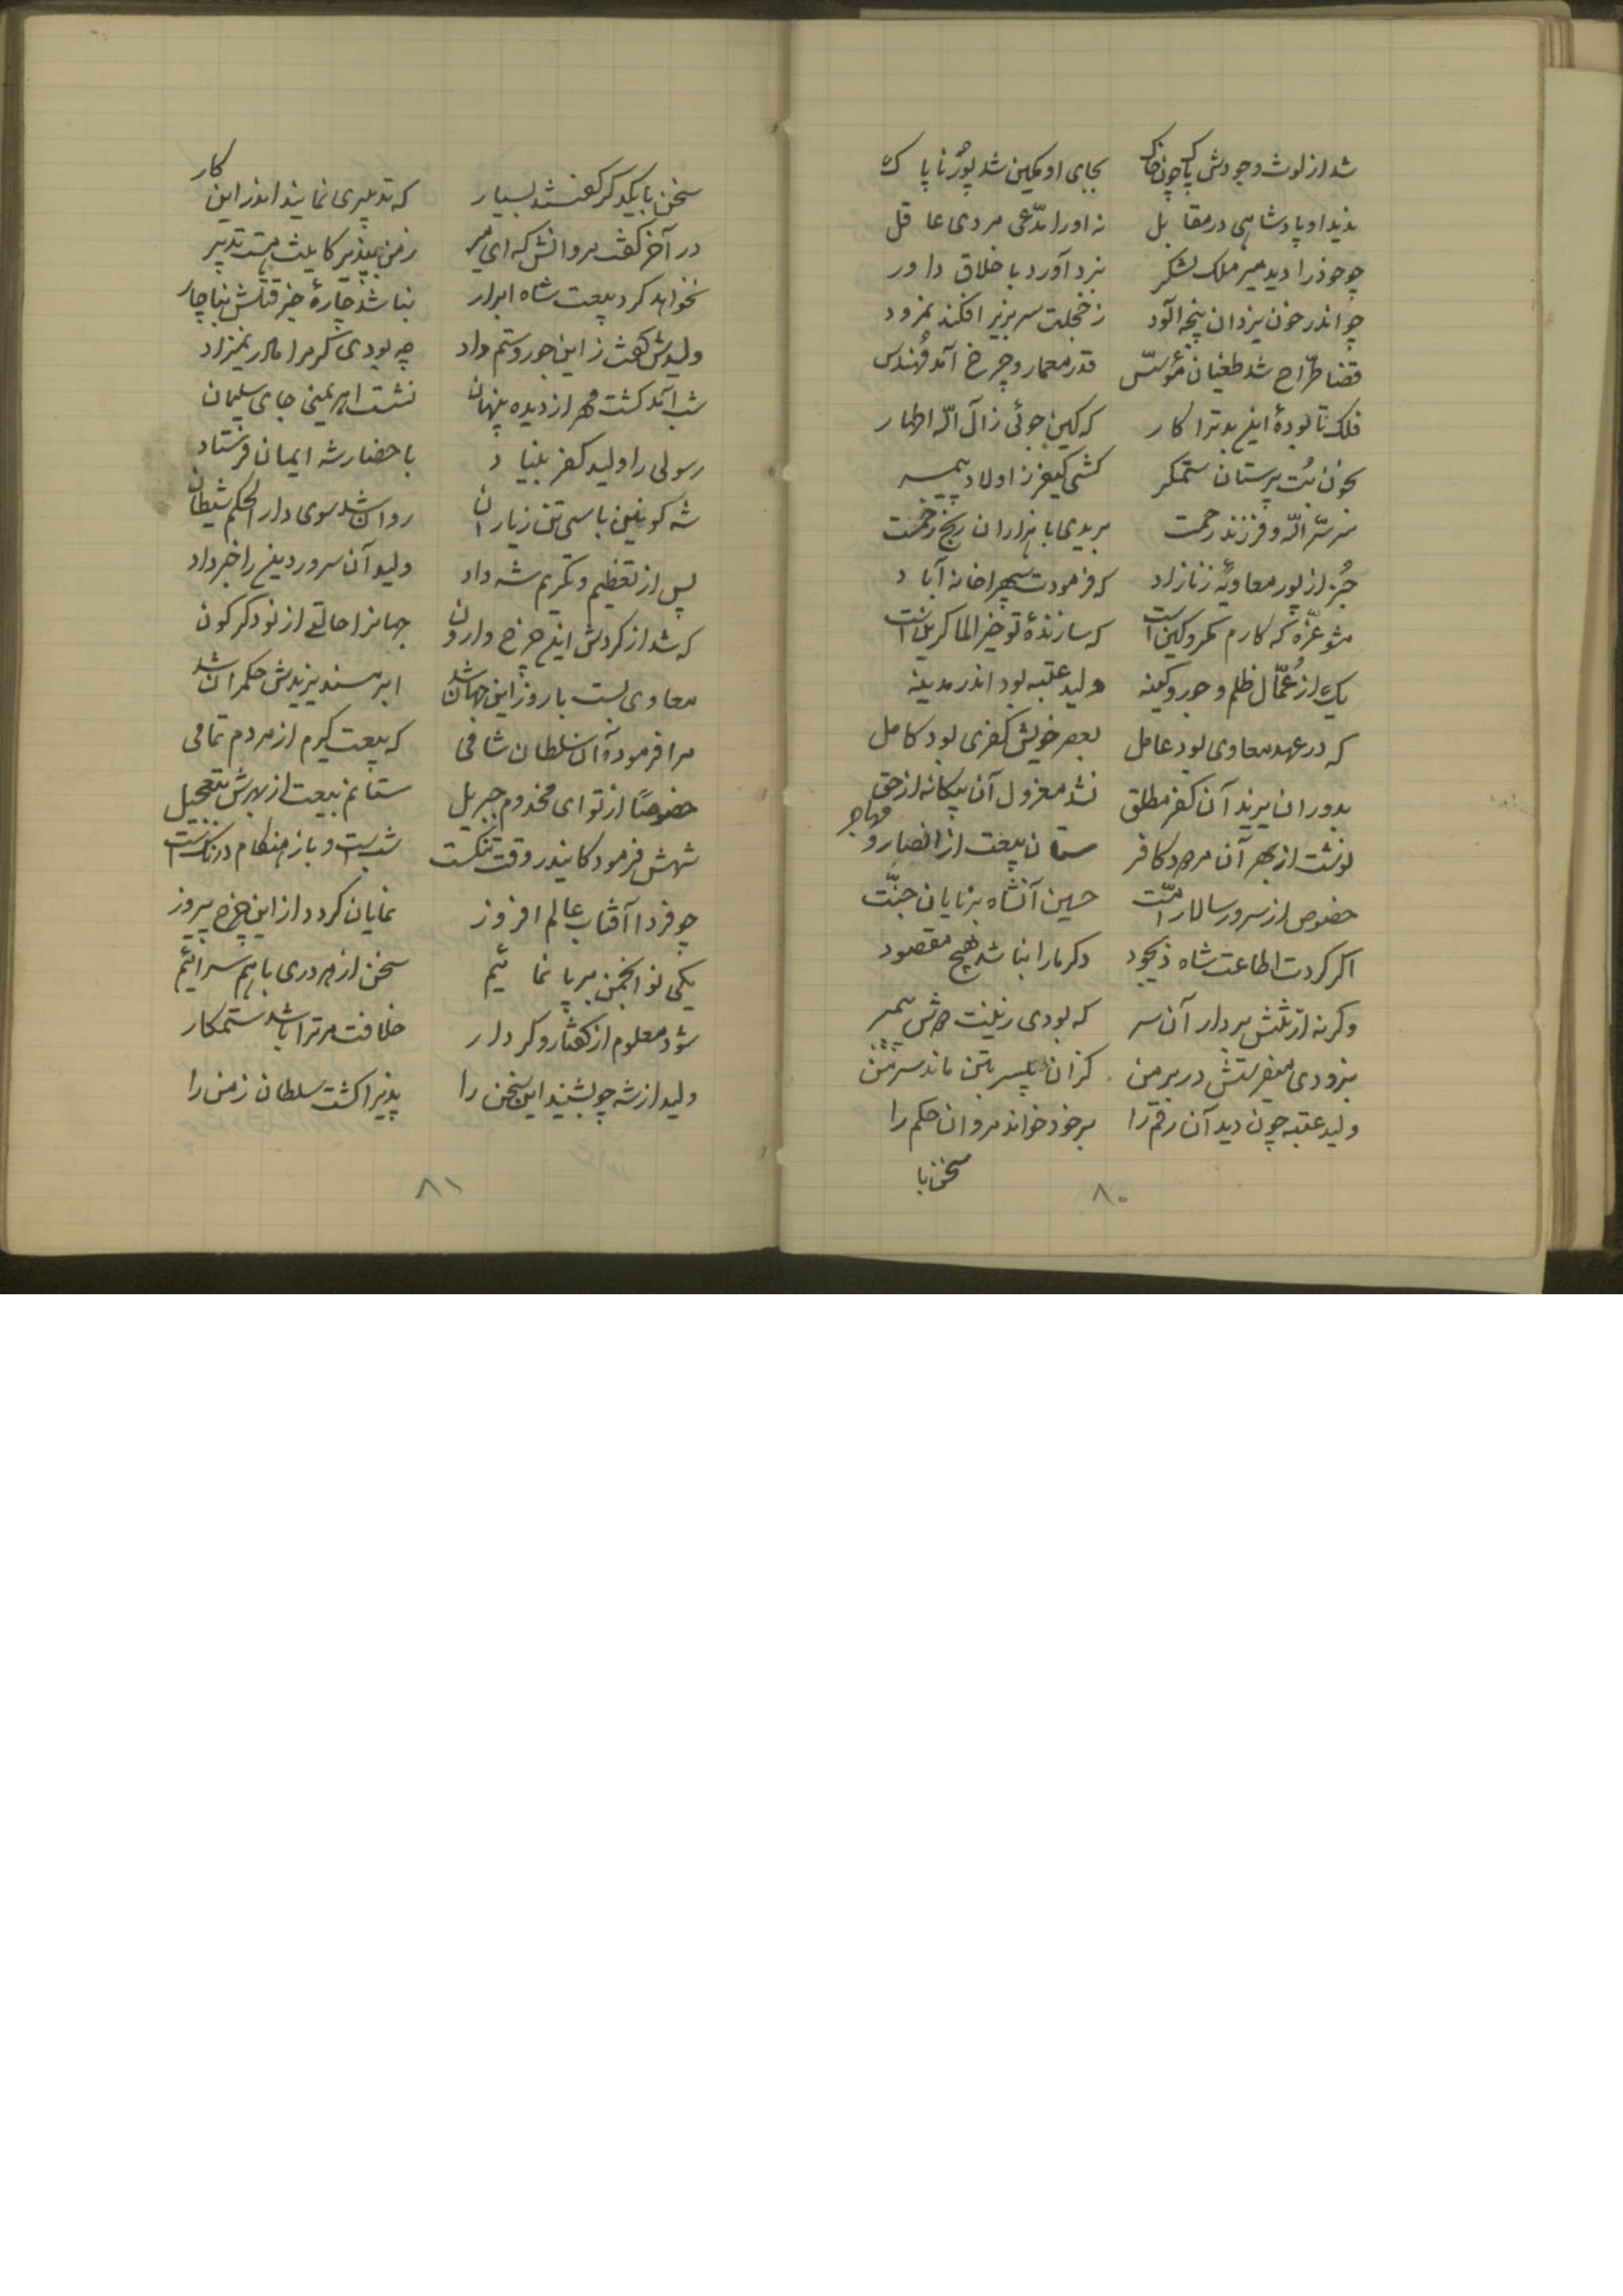 شد از لوث وجودش پاک چون خاک بجای او مکین شد پور ناپاک
ندید او پادشاهی در مقابل نه او را مدّعی مردی عاقل
چو خود را دید میر ملک لشکر نبرد آورد با خلاق داور
چو اندر خون یزدان پنجه آلود ز خجلت سر بزیر افکند نمرود
قضا طرّاح شد طغیان مؤسّس قدر معمار و چرخ آمد مهندس
فلک تا بودهٔ این بد ترا کار که کین جوئی ز آل الله اطهار
بخون بت پرستان ستمگر کشی کیفر ز اولاد پیمبر
سر سرّ اله و فرزند رحمت بریدی با هزاران رنج و زحمت
جز از پور معاویهٔ زنازاد که فرمودت سپهرا خانه آباد
مشو غرّه که کارم مکر و کین است که سازندهٔ تو خیر الماکرین است
یکی از عمّال ظلم و جور و کینه ولید عتبه بود اندر مدینه
که در عهد معاوی بود عامل بعصر خویش کفری بود کامل
بدوران یزید آن کفر مطلق نشد معزول آن بیگانه از حق
نوشت از بهر آن مرد کافر ستان بیعت از انصار و مهاجر
خصوص از سرور سالار امّت حسین آنشاه برنایان جنّت
اگر کردت اطاعت شاه ذیجود دگر ما را نباشد هیچ مقصود
وگرنه از تنش بردار آن سر که بودی زینت دوش پیمبر
بزودی میفرستش در بر من گران پسر بتن ماند سر من
ولید عتبه چون دید آن رقم را بر خود خواند مروان حکم را
سخن با
۸۰
سخن با یکدگر گفتند بسیار که تدبیری نمایند اندر این کار
در آخر گفت مروانش که ای میر ز من بپذیر کاینت هست تدبیر
نخواهد کرد بیعت شاه ابرار نباشد چارهٔ جز قتلش بناچار
ولیدش گفت ز این جور و ستم داد چه بودی گر مرا مادر نمیزاد
شب آمد گشت مهر از دیده پنهان نشست اهریمنی جای سلیمان
رسولی را ولید کفر بنیاد باحضار شه ایمان فرستاد
شه کونین با سی تن ز یاران روان شد سوی دار الحکم شیطان
پس از تعظیم و تکریم شه داد ولید آن سرور دین را خبر داد
که شد از گردش این چرخ وارون جهانرا حالتی از نو دگرگون
معاوی بست بار و ز این جهان شد ابر مسند یزیدش حکمران شد
مرا فرموده آن سلطان شامی که بیعت گیرم از مردم تمامی
خصوصاً از تو ای مخدوم جبریل ستانم بیعت از بهرش بتعجیل
شهش فرمود کایندر وقت تنگست شب است و باز هنگام درنگ است
چو فردا آفتاب عالم افروز نمایان گردد از این چرخ پیروز
یکی نو انجمن بر پا نمائیم سخن از هر دری با هم سرائیم
شود معلوم از گفتار و کردار خلافت مر ترا باشد ستمکار
ولید از شه چو بشنید این سخن را پذیرا گشت سلطان زمن را
۸۱